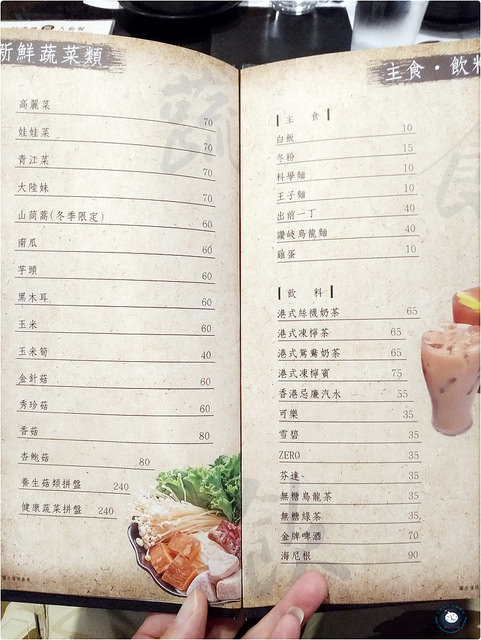 新鮮蔬菜類
高麗菜 70
娃娃菜 70
青江菜 70
大陸妹 70
山茼蒿(冬季限定) 60
南瓜 60
芋頭 60
黑木耳 60
玉米 60
玉米筍 40
金針菇 60
秀珍菇 60
香菇 80
杏鮑菇 80
養生菇類拼盤 240
健康蔬菜拼盤 240
主食・飲料
主 食
白飯 10
冬粉 15
科學麵 10
王子麵 10
出前一丁 40
讚岐烏龍麵 40
雞蛋 10
飲 料
港式絲襪奶茶 65
港式凍檸茶 65
港式鴛鴦奶茶 65
港式凍檸賓 75
香港忌廉汽水 55
可樂 35
雪碧 35
ZERO 35
芬達 35
無糖烏龍茶 35
無糖綠茶 35
金牌啤酒 70
海尼根 90